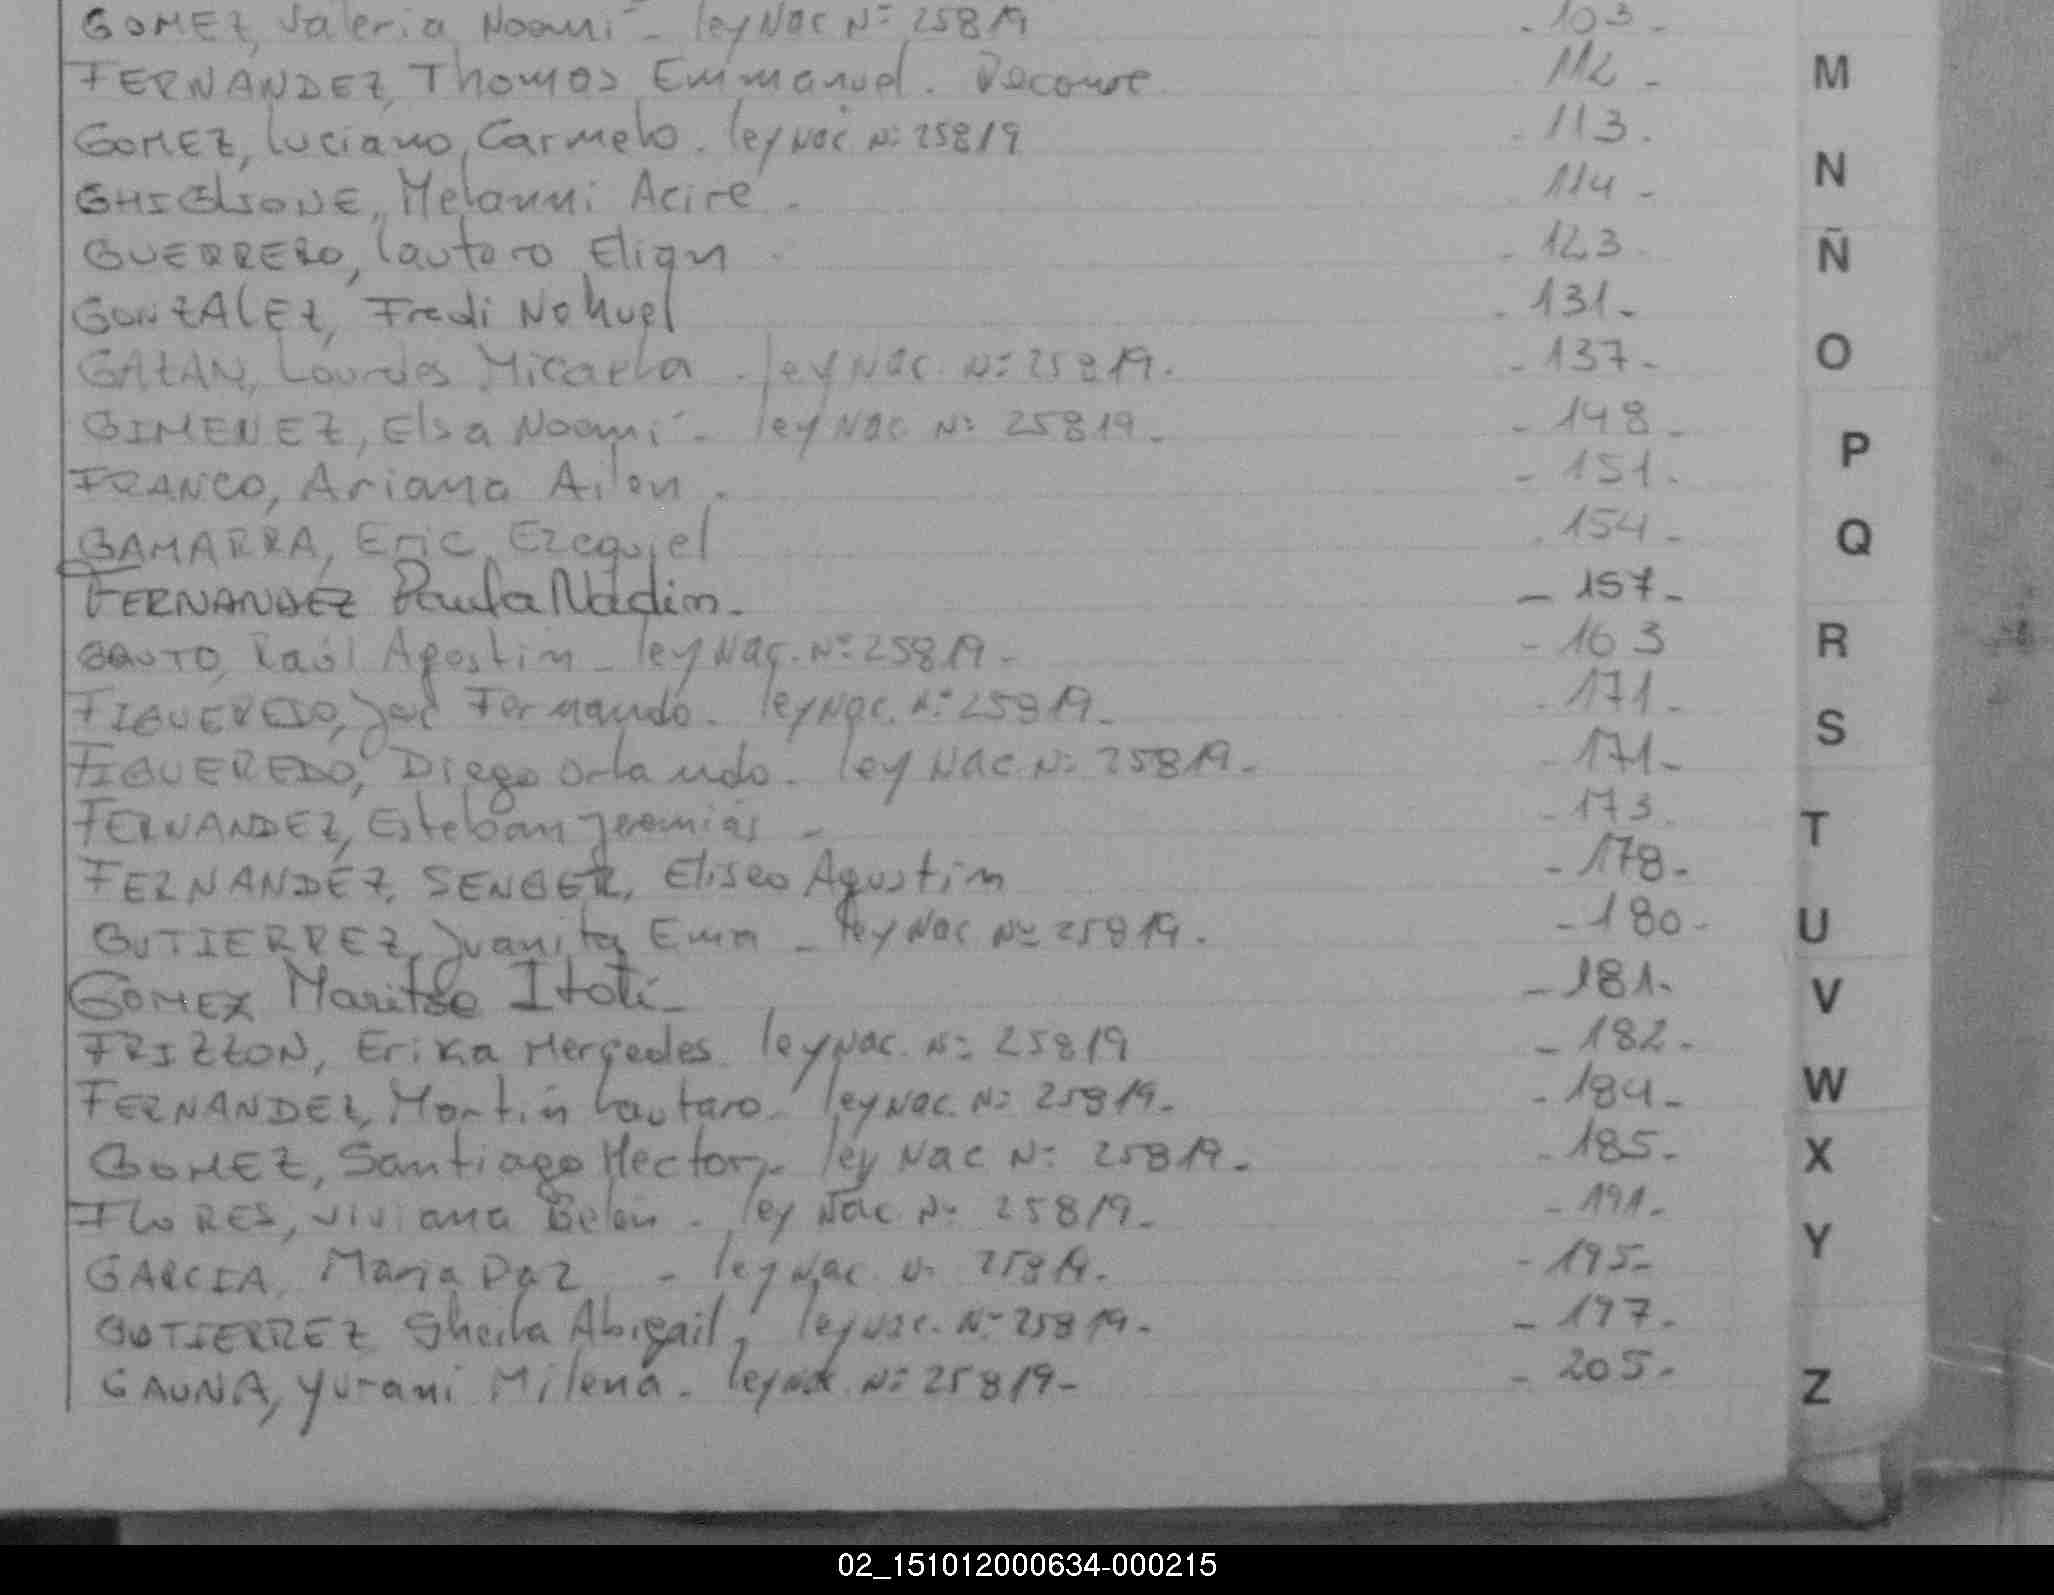 GOMEZ, Valeria Noemí - ley Nac Nº 25819 - 103 -
FERNANDEZ, Thomas Emmanuel. - 112 -
M
GOMEZ, Luciano, Carmelo. ley Nac Nº 25819 - 113.
N
GHIGLIONE, Melanni Acire - 114 -
GUERRERO, Lautaro Elian - 123
Ñ
GONZALEZ, Fredi Nahuel - 131 -
GALAN, Lourdes Micaela - ley Nac. Nº 25819. - 137 -
O
GIMENEZ, Elsa Noemí - ley Nac Nº 25819 - - 148 -
P
FRANCO, Ariana Ailen. - 151.
GAMARRA, Eric, Ezequiel . 154 -
Q
FERNANDEZ Paula Nadin. - 157 -
GAUTO, Raúl Agostin - ley Nac. Nº 25819 - - 163
R
FIGUEREDO, José Fernando. ley Nac. Nº 25819 - - 171 -
S
FIGUEREDO, Diego Orlando. ley Nac. Nº 25819 - - 171 -
FERNANDEZ, Esteban Jeremías - - 173
T
FERNANDEZ, SENGER, Eliseo Agustin - 178 -
GUTIERREZ, Juanita Ema - ley Nac Nº 25819. - 180 -
U
GOMEZ Maritza Itatí - - 181 -
V
FRIZZON, Erika Mercedes ley Nac. Nº 25819 - 182 -
FERNANDEZ, Martín Lautaro - ley Nac. Nº 25819 - - 184 -
W
GOMEZ, Santiago Hector, - ley Nac Nº 25819 - - 185 -
X
FLORES, Viviana Belén - ley Nac. Nº 25819 - - 191 -
Y
GARCIA, Maria Paz - ley Nac. Nº 25819. - 195 -
GUTIERREZ Sheila Abigail, ley Nac. Nº 25819 - - 197 -
GAUNA, Yurani Milena. ley Nac. Nº 25819 - - 205 -
Z
02_151012000634-000215